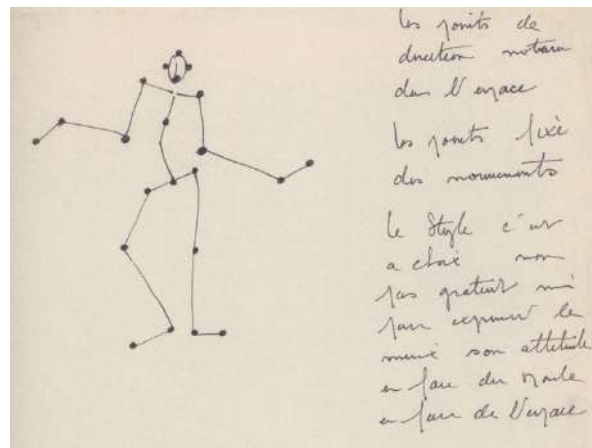 les points de
direction moteurs
dans l'espace
les points fixé
des mouvements
le Style c'est
a choix non
pas gratuit mi
pour exprimer le
mieux son attitude
en face du Monde
en face de l'espace